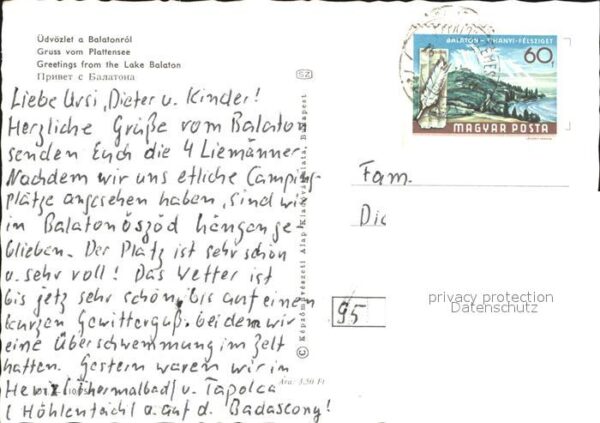 Üdvözlet a Balatonról
Gruss vom Plattensee
Greetings from the Lake Balaton
Привет с Балатона
SZ
BALATON - TIHANYI-FÉLSZIGET
60f
MAGYAR POSTA
Liebe Ursi, Dieter u. Kinder!
Herzliche Grüße vom Balaton
senden Euch die 4 Liemänner
Nachdem wir uns etliche Camping-
plätze angesehen haben, sind wir
in Balatonöszöd hängenge-
blieben. Der Platz ist sehr schön
u. sehr voll! Das Wetter ist
bis jetz sehr schön, bis auf einen
kurzen Gewitterguß, bei dem wir
eine Überschwemmung im Zelt
hatten. Gestern waren wir in
Heviz (Thermalbad) u. Tapolca
(Höhlenteich) a. auf d. Badascony!
Ára: 3,50 Ft
© Képzőművészeti Alap Kiadóvállalata, Budapest
Fam.
Die
95
privacy protection
Datenschutz